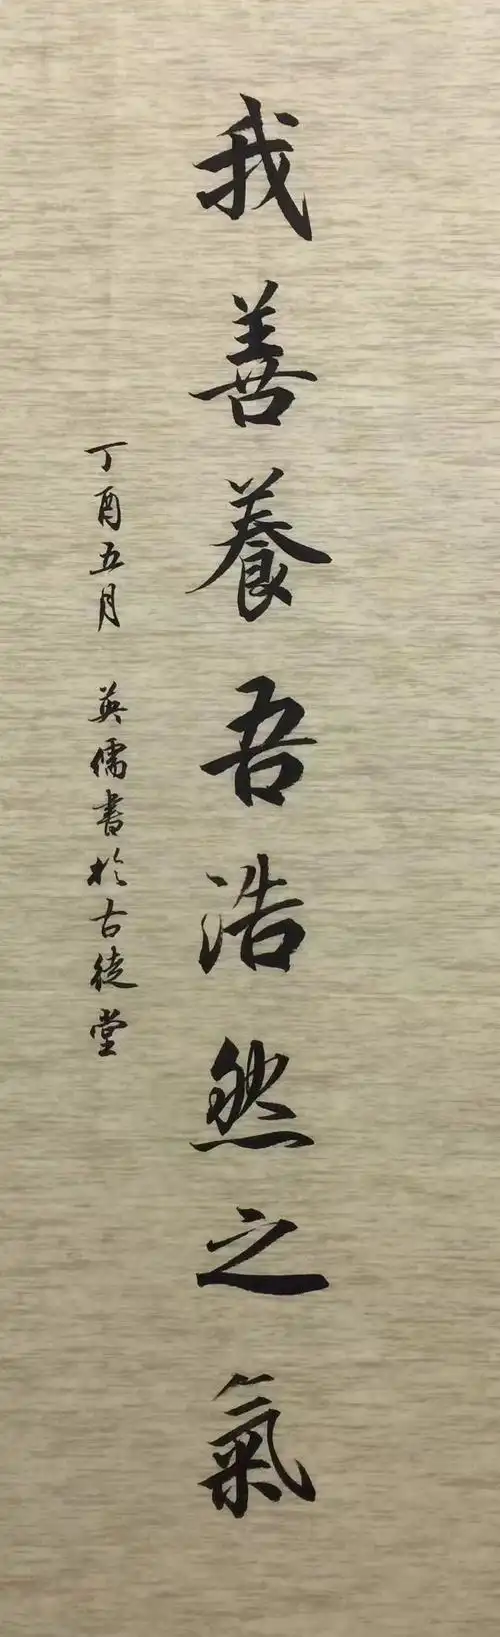 我善養吾浩然之氣
丁酉五月 英儒書於古徒堂